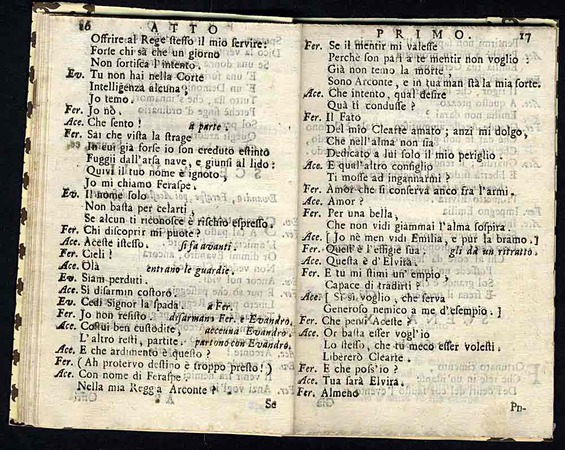 16 ATTO
Offrire al Rege stesso il mio servire:
Forse chi sà che un giorno
Non sortisca l'intento.
Ev. Tu non hai nella Corte
Intelligenza alcuna?
Jo temo.
Fer. Jo nò.
Ace. Che sento! a parte.
Fer. Sai che vista la strage
In cui già forse io son creduto estinto
Fuggii dall'arsa nave, e giunsi al lido:
Quivi il tuo nome è ignoto.
Jo mi chiamo Feraspe.
Ev. Il nome solo
Non basta per celarti,
Se alcun ti riconosce è rischio espresso.
Fer. Chi discoprir mi puote?
Ace. Aceste istesso. si fa avanti.
Fer. Cieli!
Ace. Olà entrano le guardie.
Ev. Siam perduti.
Ace. Si disarmin costoro.
Ev. Cedi Signor la spada. a Fer.
Fer. Jo non resisto. disarmano Fer. e Evandro.
Ace. Costui ben custodite, accenna Evandro.
L'altro resti, partite. partono con Evandro.
Ace. E che ardimento è questo?
Fer. (Ah protervo destino è troppo presto!)
Ace. Con nome di Feraspe
Nella mia Reggia Arconte?
Se
PRIMO. 17
Fer. Se il mentir mi valesse
Perchè son pari a te mentir non voglio:
Già non temo la morte,
Sono Arconte, e in tua man stà la mia sorte.
Ace. Che intento, qual desire
Quà ti condusse?
Fer. Il Fato
Del mio Clearte amato; anzi mi dolgo,
Che nell'alma non sia
Dedicato a lui solo il mio periglio.
Ace. E qual'altro consiglio
Ti mosse ad ingannarmi?
Fer. Amor che si conserva anco fra l'armi.
Ace. Amor?
Fer. Per una bella,
Che non vidi giammai l'alma sospira.
Ace. [Jo nè men vidi Emilia, e pur la bramo.]
Fer. Quest' è l'effigie sua. gli dà un ritratto.
Ace. Questa è d'Elvira.
Fer. E tu mi stimi un'empio,
Capace di tradirti?
Ace. [Sì sì voglio, che serva
Generoso nemico a me d'esempio.]
Fer. Che pensi Aceste?
Ace. Or basta esser vogl'io
Lo stesso, che tu meco esser volesti.
Libererò Clearte.
Fer. E che poss'io?
Ace. Tua sarà Elvira.
Fer. Almeno
Pu-